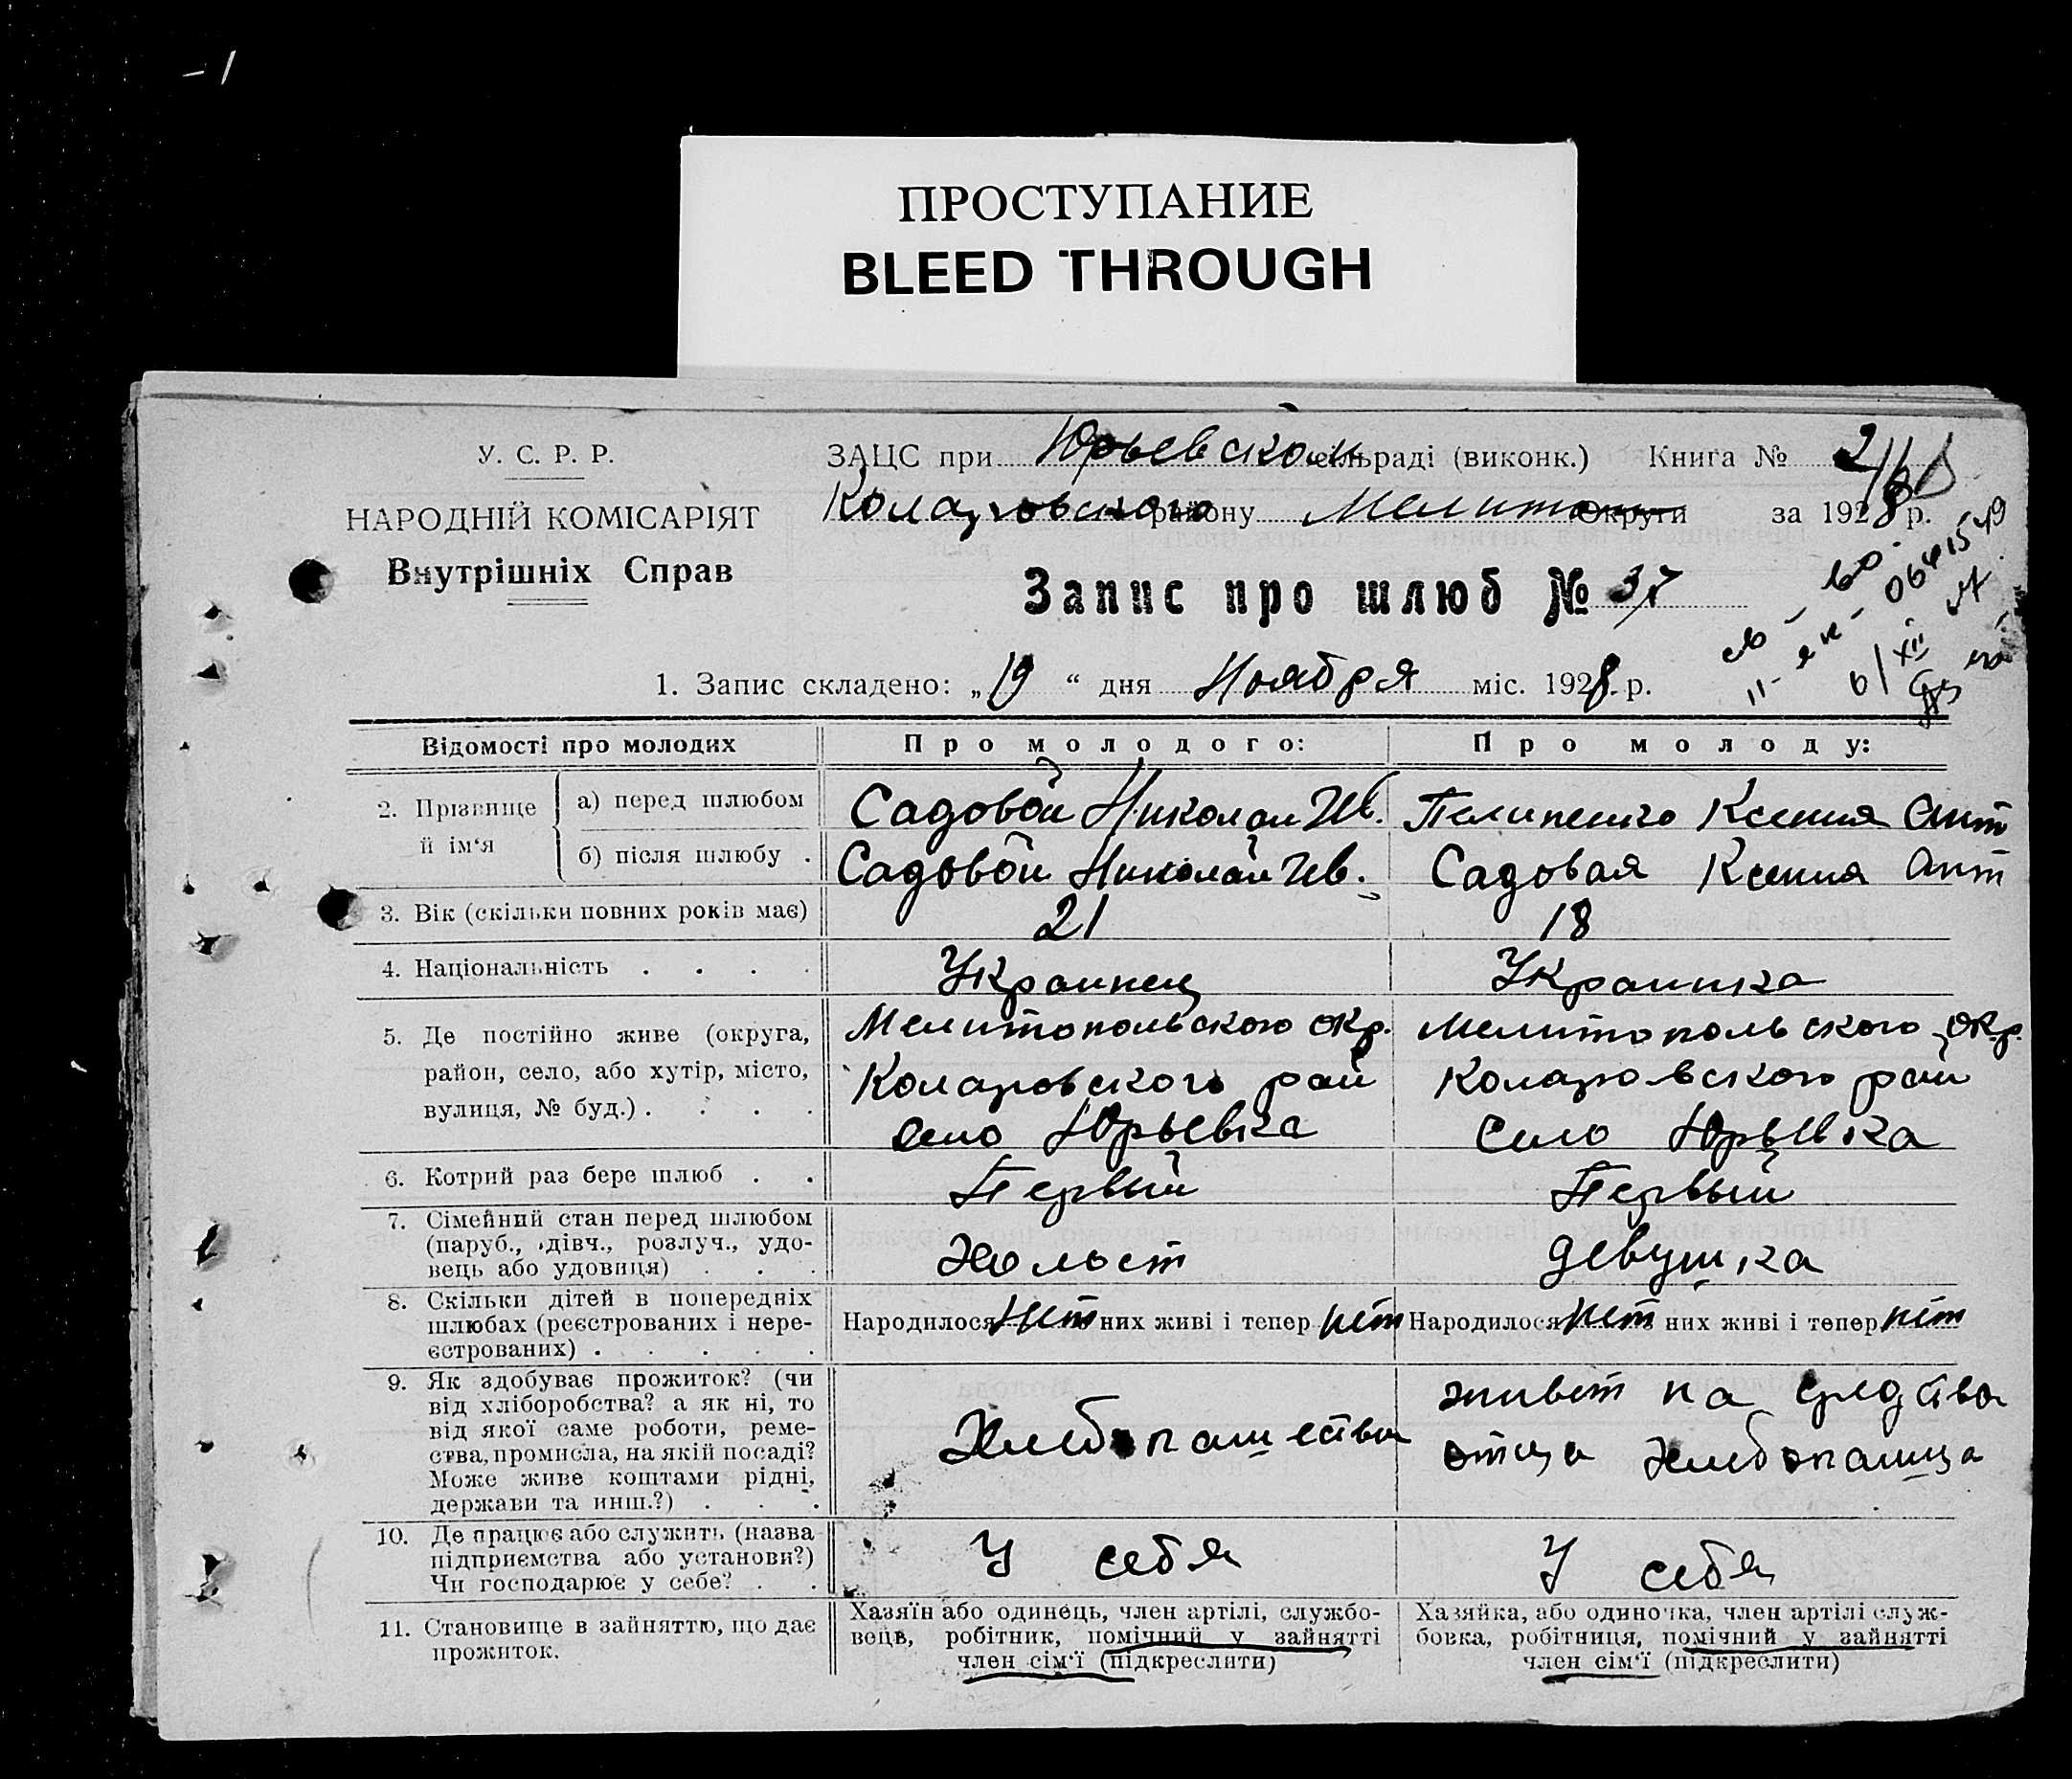 - 1
ПРОСТУПАНИЕ
BLEED THROUGH
У. С. Р. Р.
НАРОДНІЙ КОМІСАРІЯТ
Внутрішніх Справ
ЗАЦС при Юрьевском сільраді (виконк.) Книга № 2/
Коларовского району Мелитоп округи за 1928 р.
Запис про шлюб № 37
1. Запис складено: „19“ дня Ноября міс. 1928 р.
Відомості про молодих
Про молодого:
Про молоду:
2. Прізвище й ім'я
а) перед шлюбом
Садовой Николай Ив.
Пелипенко Ксения Ант
б) після шлюбу .
Садовой Николай Ив.
Садовая Ксения Ант
3. Вік (скільки повних років має)
21
18
4. Національність . . . .
Украинец
Украинка
5. Де постійно живе (округа,
район, село, або хутір, місто,
вулиця, № буд.) . . . .
Мелитопольского окр.
Коларовского рай
село Юрьевка
Мелитопольского окр.
Коларовского рай
Село Юрьевка
6. Котрий раз бере шлюб . .
Первый
Первый
7. Сімейний стан перед шлюбом
(паруб., дівч., розлуч., удо-
вець або удовиця) . . .
Холост
девушка
8. Скільки дітей в попередніх
шлюбах (реєстрованих і нере-
єстрованих) . . . . .
Народилося Нет них живі і тепер нет
Народилося нет них живі і тепер нет
9. Як здобуває прожиток? (чи
від хліборобства? а як ні, то
від якої саме роботи, реме-
ства, промисла, на якій посаді?
Може живе коштами рідні,
держави та инш.?) . . .
Хлебопашество
живет на средства
отца хлебопашца
10. Де працює або служить (назва
підприємства або установи?)
Чи господарює у себе? . .
У себя
У себя
11. Становище в зайняттю, що дає
прожиток.
Хазяїн або одинець, член артілі, службо-
вець, робітник, помічний у зайнятті
член сім'ї (підкреслити)
Хазяйка, або одиночка, член артілі служ-
бовка, робітниця, помічний у зайнятті
член сім'ї (підкреслити)